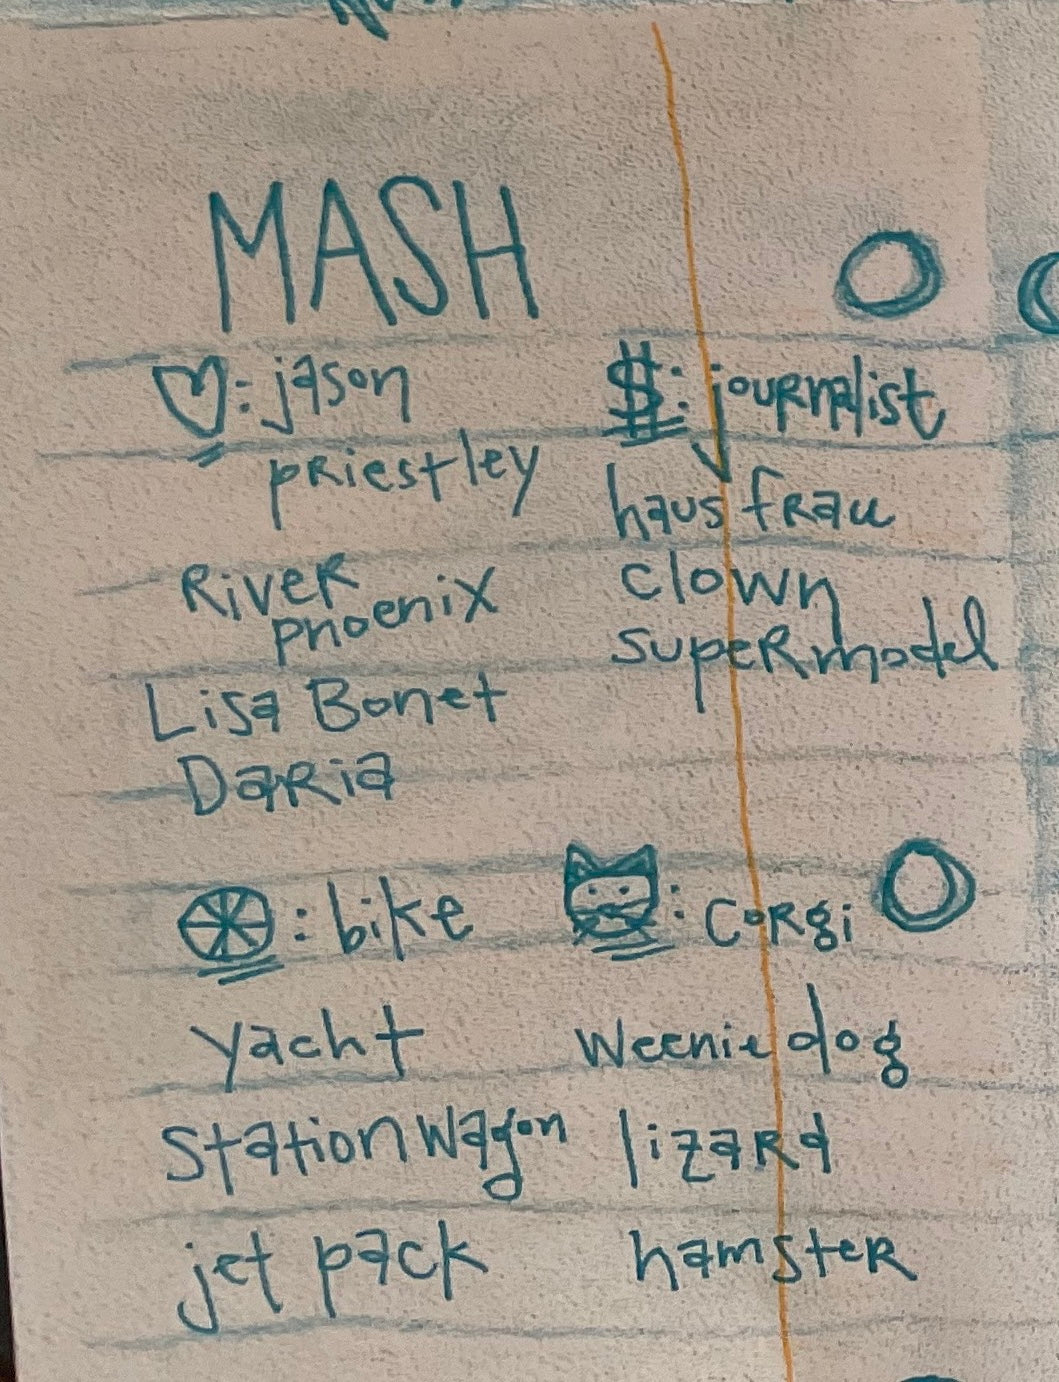 MASH
♡: jason
priestley
River
phoenix
Lisa Bonet
Daria
$: journalist
haus frau
clown
supermodel
: bike
yacht
station wagon
jet pack
: corgi
weenie dog
lizard
hamster